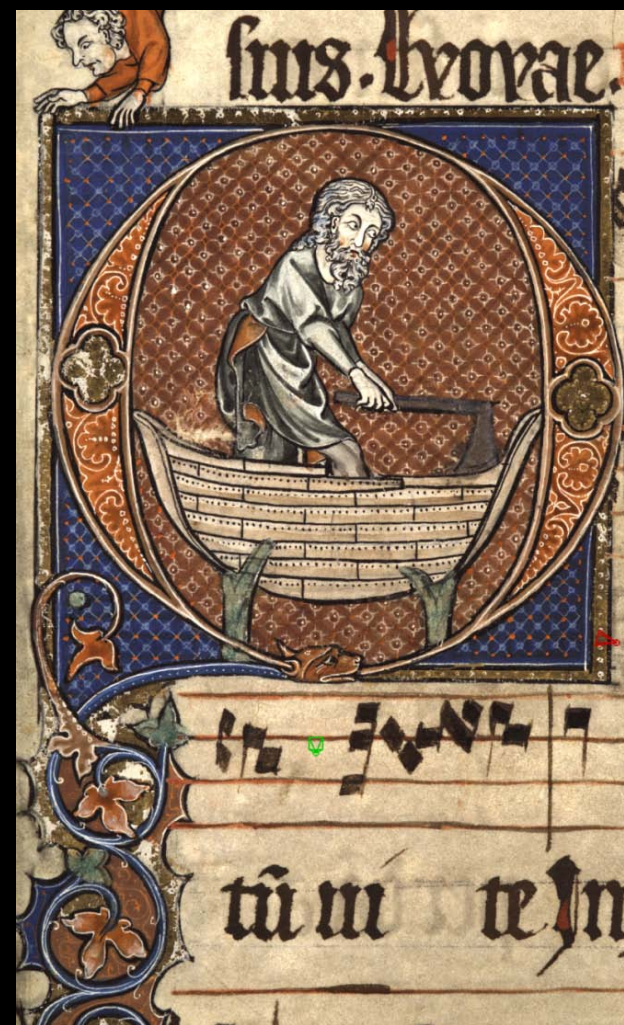 suis. Evovae.
tū in te In